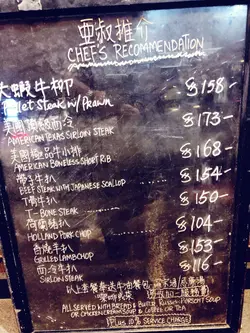 亞椒推介
CHEF'S RECOMMENDATION
大蝦牛柳 $158-
Fillet Steak w/ Prawn
美國 西冷 $173-
AMERICAN TEXAS SIRLOIN STEAK
美國極品牛小排 $168-
AMERICAN BONELESS SHORT RIB
帶子牛扒 $154-
BEEF STEAK WITH JAPANESE SCALLOP
T骨牛扒 $150-
T-BONE STEAK
荷蘭豬扒 $104-
HOLLAND PORK CHOP
香 羊扒 $153-
GRILLED LAMB CHOP
西冷牛扒 $116-
SIRLOIN STEAK
以上套餐奉送牛油餐包
ALL SERVED WITH BREAD & BUTTER, RUSSIAN BORSCHT SOUP
OR CHICKEN CREAM SOUP & COFFEE OR TEA
(Plus 10% SERVICE CHARGE)